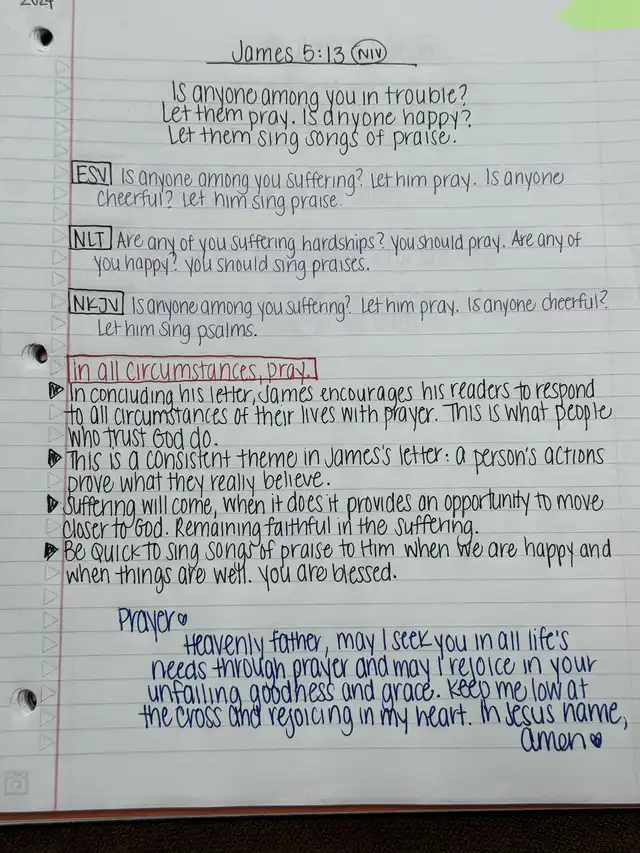 2024
James 5:13 NIV
Is anyone among you in trouble?
Let them pray. Is anyone happy?
Let them sing songs of praise.
ESV Is anyone among you suffering? Let him pray. Is anyone
cheerful? Let him sing praise.
NLT Are any of you suffering hardships? You should pray. Are any of
you happy? You should sing praises.
NKJV Is anyone among you suffering? Let him pray. Is anyone cheerful?
Let him sing psalms.
in all circumstances, pray.
In concluding his letter, James encourages his readers to respond
to all circumstances of their lives with prayer. This is what people
who trust God do.
This is a consistent theme in James's letter: a person's actions
prove what they really believe.
Suffering will come, when it does it provides an opportunity to move
closer to God. Remaining faithful in the suffering.
Be quick to sing songs of praise to Him when we are happy and
when things are well. You are blessed.
Prayer
Heavenly father, may I seek you in all life's
needs through prayer and may I rejoice in your
unfailing goodness and grace. Keep me low at
the cross and rejoicing in my heart. In Jesus name,
amen